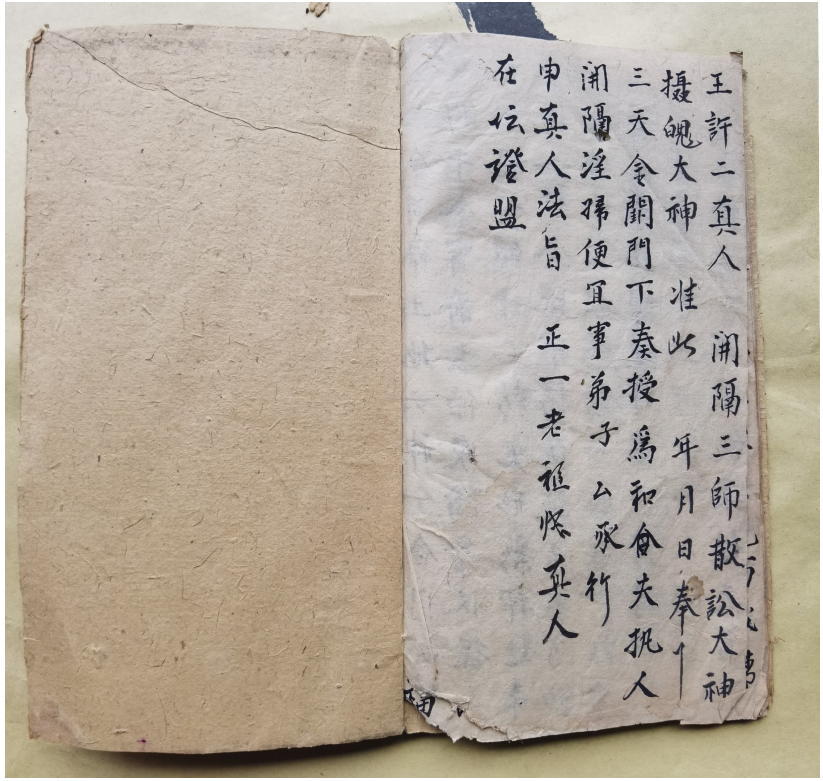 王許二真人 開隔三師散訟大神
摄魄大神 准此 年月日奉行
三天金闕門下奏授爲和會夫执人
開隔淫掃便宜事弟子厶承行
申真人法旨 正一老祖 真人
在坛證盟